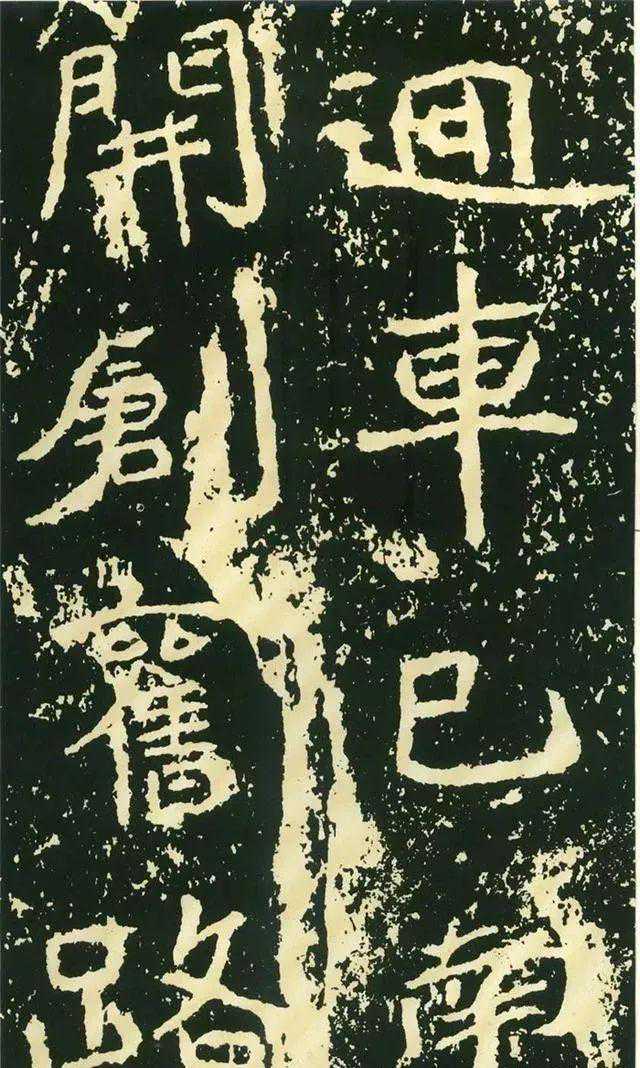 迴車已南
開創舊路